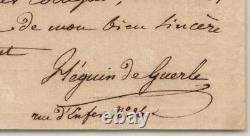 de mon bien sincère
Héguin de Guerle
rue d'Enfer n°